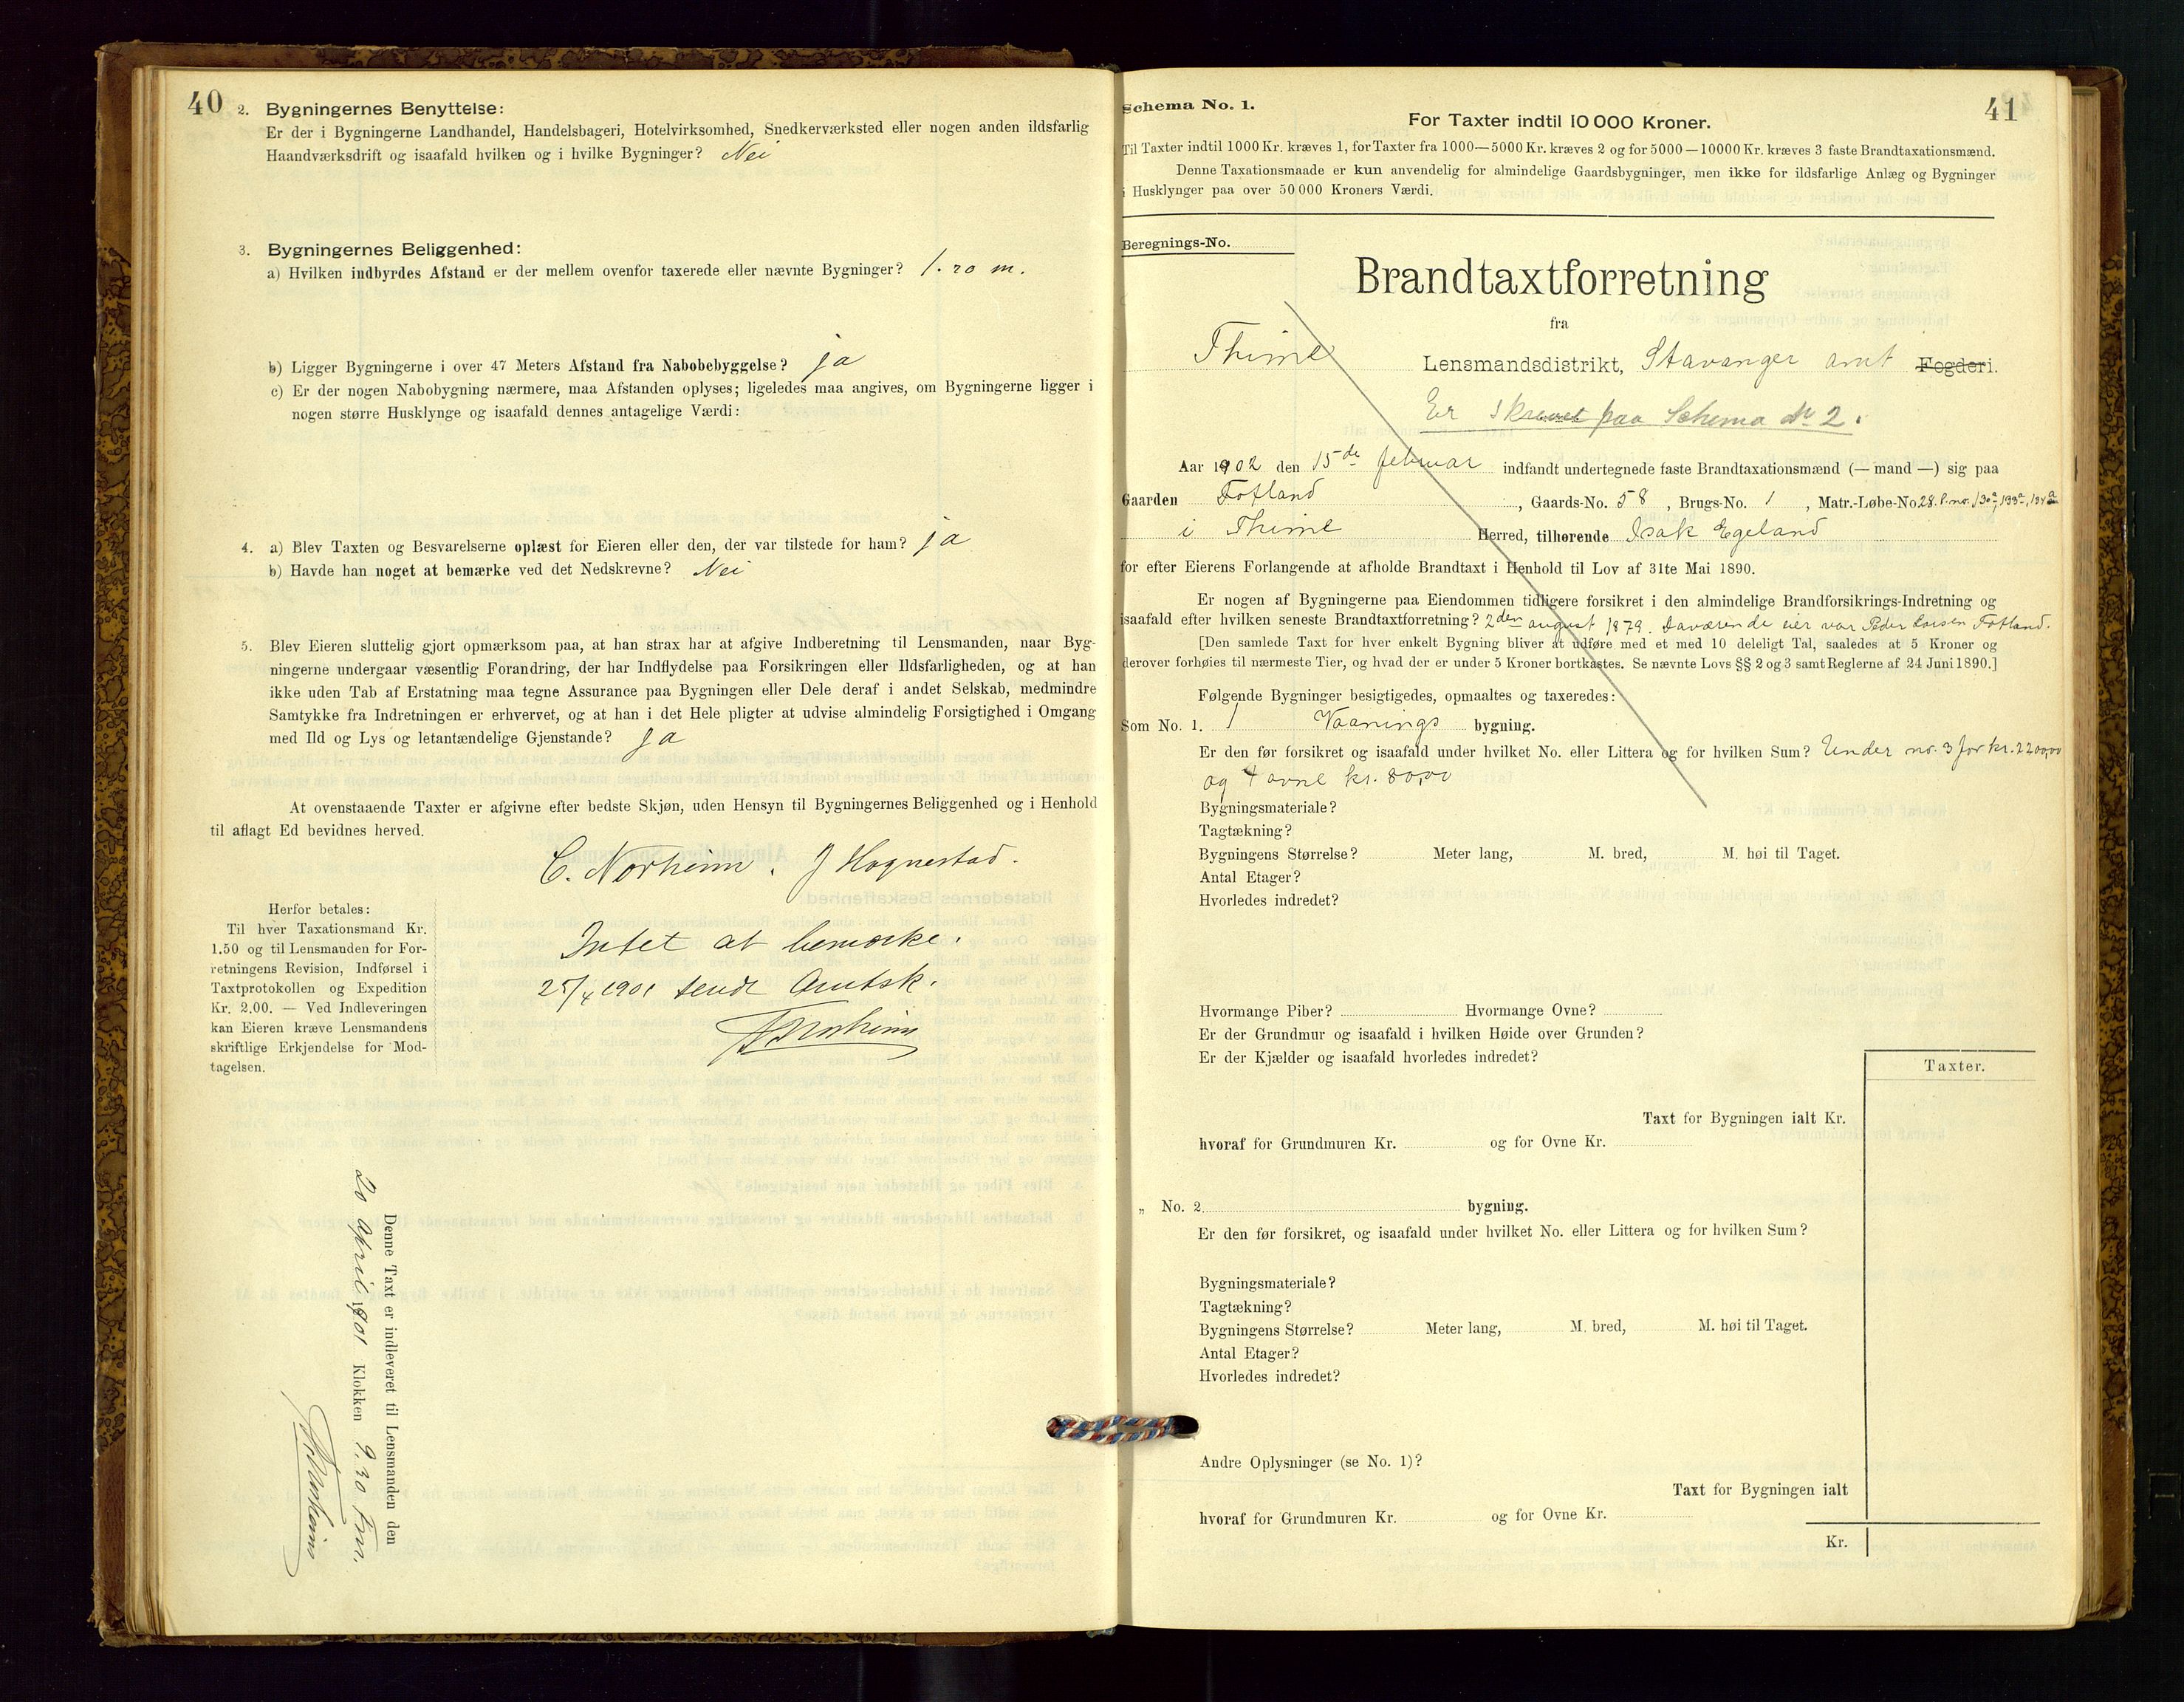 40
2. Bygningernes Benyttelse:
Er der i Bygningerne Landhandel, Handelsbageri, Hotelvirksomhed, Snedkerværksted eller nogen anden ildsfarlig
Haandværksdrift og isaafald hvilken og i hvilke Bygninger? Nei
3. Bygningernes Beliggenhed:
a) Hvilken indbyrdes Afstand er der mellem ovenfor taxerede eller nævnte Bygninger? 1. 20 m.
b) Ligger Bygningerne i over 47 Meters Afstand fra Nabobebyggelse? ja
c) Er der nogen Nabobygning nærmere, maa Afstanden oplyses; ligeledes maa angives, om Bygningerne ligger i
nogen større Husklynge og isaafald dennes antagelige Værdi:
4. a) Blev Taxten og Besvarelserne oplæst for Eieren eller den, der var tilstede for ham? ja
b) Havde han noget at bemærke ved det Nedskrevne? Nei
5. Blev Eieren sluttelig gjort opmærksom paa, at han strax har at afgive Indberetning til Lensmanden, naar Byg-
ningerne undergaar væsentlig Forandring, der har Indflydelse paa Forsikringen eller Ildsfarligheden, og at han
ikke uden Tab af Erstatning maa tegne Assurance paa Bygningen eller Dele deraf i andet Selskab, medmindre
Samtykke fra Indretningen er erhvervet, og at han i det Hele pligter at udvise almindelig Forsigtighed i Omgang
med Ild og Lys og letantændelige Gjenstande? ja
At ovenstaaende Taxter er afgivne efter bedste Skjøn, uden Hensyn til Bygningernes Beliggenhed og i Henhold
til aflagt Ed bevidnes herved.
C. Norheim. J Hognestad.
Herfor betales:
Til hver Taxationsmand Kr.
1.50 og til Lensmanden for For-
retningens Revision, Indførsel i
Taxtprotokollen og Expedition
Kr. 2.00. — Ved Indleveringen
kan Eieren kræve Lensmandens
skriftlige Erkjendelse for Mod-
tagelsen.
Intet at bemærke.
25/4 1901 sendt Amtsk.
Denne Taxt er indleveret til Lensmanden den
20 April 1901 Klokken 9.30 Fm.
41
Schema No. 1.
For Taxter indtil 10 000 Kroner.
Til Taxter indtil 1000 Kr. kræves 1, for Taxter fra 1000—5000 Kr. kræves 2 og for 5000—10000 Kr. kræves 3 faste Brandtaxationsmænd.
Denne Taxationsmaade er kun anvendelig for almindelige Gaardsbygninger, men ikke for ildsfarlige Anlæg og Bygninger
i Husklynger paa over 50 000 Kroners Værdi.
Beregnings-No.
Brandtaxtforretning
fra
Thime Lensmandsdistrikt, Stavanger amt Fogderi.
Er skrevet paa Schema No 2.
Aar 1902 den 15de februar indfandt undertegnede faste Brandtaxationsmænd (— mand —) sig paa
Gaarden Fotland, Gaards-No. 58, Brugs-No. 1, Matr.-Løbe-No. 28. l. no. 130a, 133a, 134a
i Thime Herred, tilhørende Isak Egeland
for efter Eierens Forlangende at afholde Brandtaxt i Henhold til Lov af 31te Mai 1890.
Er nogen af Bygningerne paa Eiendommen tidligere forsikret i den almindelige Brandforsikrings-Indretning og
isaafald efter hvilken seneste Brandtaxtforretning? 2den august 1879. Daværende eier var Peder Larsen Fotland.
[Den samlede Taxt for hver enkelt Bygning bliver at udføre med et med 10 deleligt Tal, saaledes at 5 Kroner og
derover forhøies til nærmeste Tier, og hvad der er under 5 Kroner bortkastes. Se nævnte Lovs §§ 2 og 3 samt Reglerne af 24 Juni 1890.]
Følgende Bygninger besigtigedes, opmaaltes og taxeredes:
Som No. 1. 1 Vaanings bygning.
Er den før forsikret og isaafald under hvilket No. eller Littera og for hvilken Sum? Under no. 3 for kr. 2200,00
og 4 ovne kr. 80,00
Bygningsmateriale?
Tagtækning?
Bygningens Størrelse? Meter lang, M. bred, M. høi til Taget.
Antal Etager?
Hvorledes indredet?
Hvormange Piber? Hvormange Ovne?
Er der Grundmur og isaafald i hvilken Høide over Grunden?
Er der Kjælder og isaafald hvorledes indredet?
Taxter.
Taxt for Bygningen ialt Kr.
hvoraf for Grundmuren Kr. og for Ovne Kr.
„ No. 2 bygning.
Er den før forsikret, og isaafald under hvilket No. eller Littera og for hvilken Sum?
Bygningsmateriale?
Tagtækning?
Bygningens Størrelse? Meter lang, M. bred, M. høi til Taget.
Antal Etager?
Hvorledes indredet?
Andre Oplysninger (se No. 1)?
Taxt for Bygningen ialt
hvoraf for Grundmuren Kr. og for Ovne Kr.
Kr.